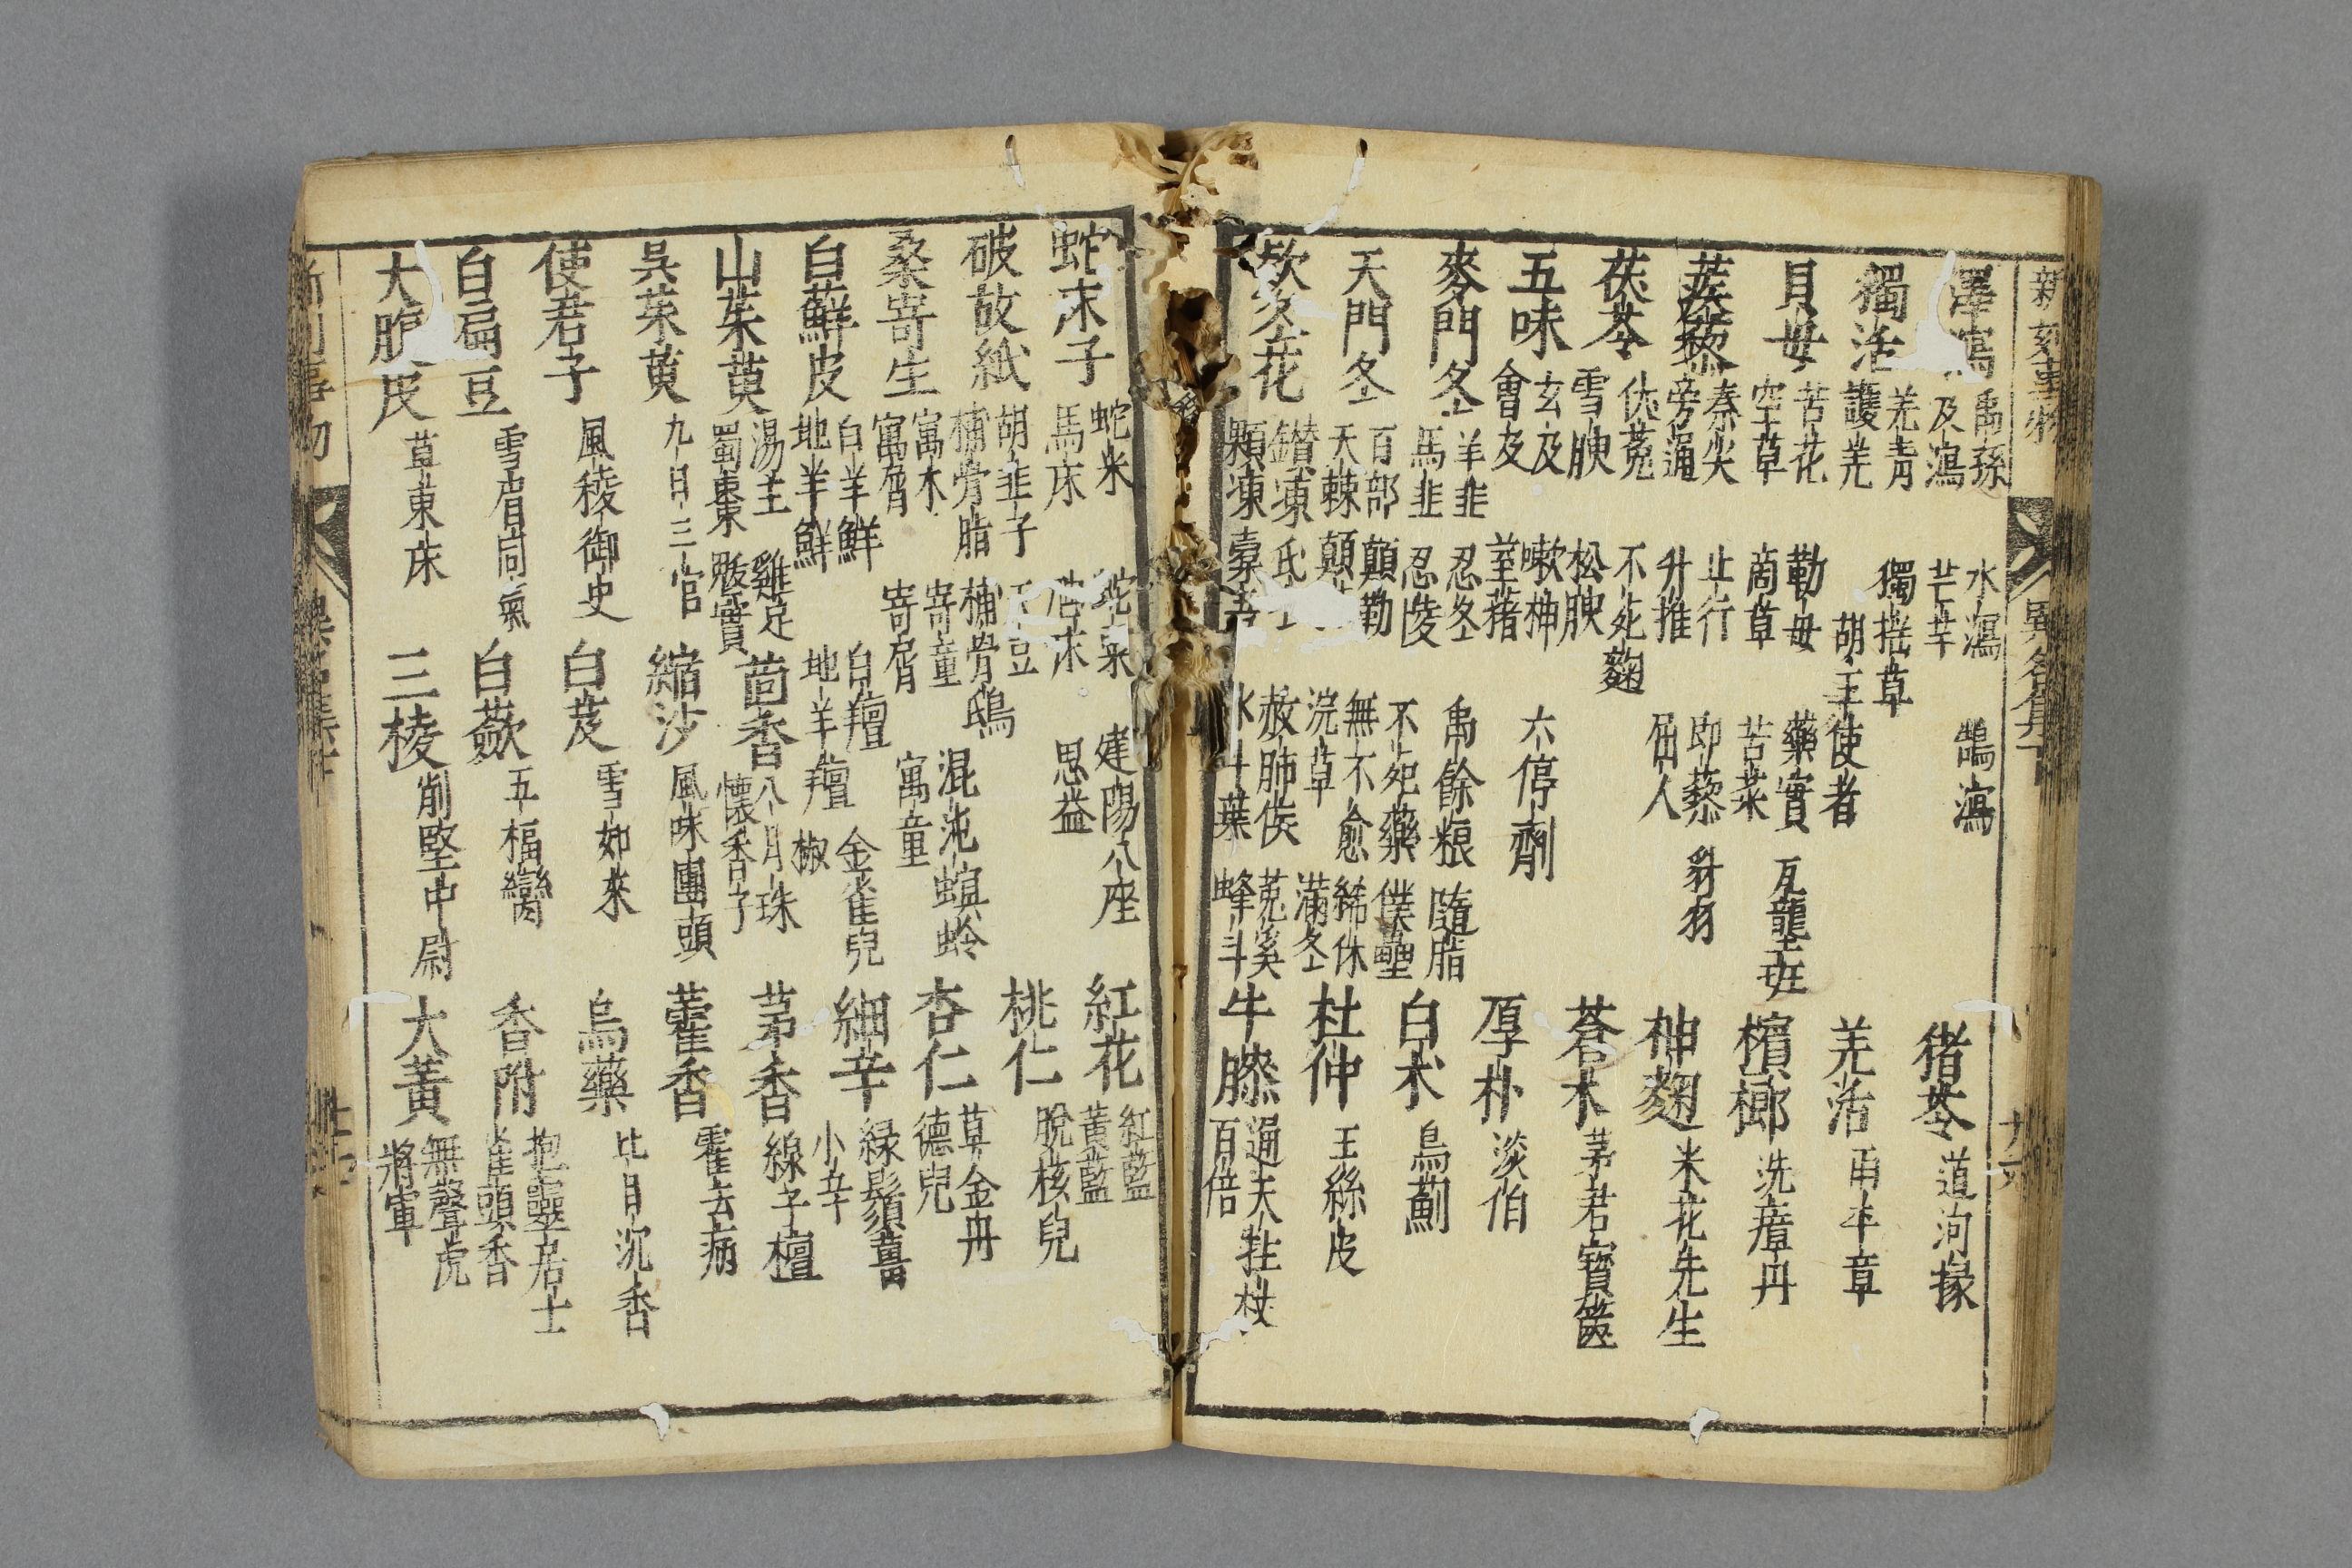 新刻事物 異名卷下 廿六
澤瀉 禹孫 及瀉 水瀉 芒芋 鵠瀉 猪苓 道洵掾
獨活 羌青 護羌 獨搖草 胡王使者 羌活 雨丰章
貝母 苦花 空草 勤母 商草 藥實 苦菜 瓦壟班 檳榔 洗瘴丹
蒺藜 秦尖 旁通 止行 升推 即藜 屈人 豺羽 神麹 米花先生
茯苓 雪腴 伏菟 松腴 不死麹 蒼朮 茅君寶篋
五味 玄及 會及 嗽神 荎藸 六停劑 厚朴 淡伯
麥門冬 羊韭 馬韭 忍冬 忍陵 禹餘粮 隨脂 白朮 烏薊
天門冬 百部 天棘 顛勒 顛 不死藥 無不愈 浣草 僕壘 絺休 滿冬 杜仲 玉絲皮
欵冬花 鑚凍 顆凍 氐冬 橐吾 赦肺侯 水斗葉 菟奚 蜂斗 牛膝 通天牲杖 百倍
蛇床子 蛇米 馬床 蛇粟 建陽八座 思益 紅花 紅藍 黃藍
破故紙 胡韭子 補骨脂 補骨鴟 混沌螟蛉 桃仁 脫核兒
桑寄生 寓木 寓屑 寄童 寄屑 寓童 杏仁 草金丹 德兒
白蘚皮 白羊鮮 地羊鮮 白羶 地羊羶 金雀兒椒 細辛 綠鬚薑 小辛
山茱萸 湯主 蜀棗 雞足 鼠實 茴香 八月珠 懷香子 茅香 線子檀
吳茱萸 九日三官 縮沙 風味團頭 藿香 霍去病
使君子 風稜御史 白芨 雪如來 烏藥 比目沉香
白扁豆 雪眉同氣 白蘞 五楅臠 香附 抱靈居士 雀頭香
大腹皮 草東床 三棱 削堅中尉 大黃 無聲虎 將軍